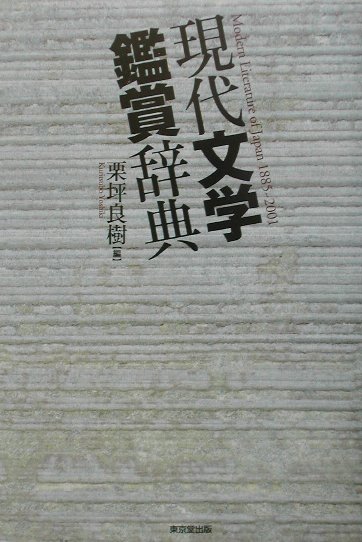 Modern Literature of Japan 1885-2001
現代文学
鑑賞辞典
栗坪良樹【編】
Kuritsubo Yoshiki
東京堂出版